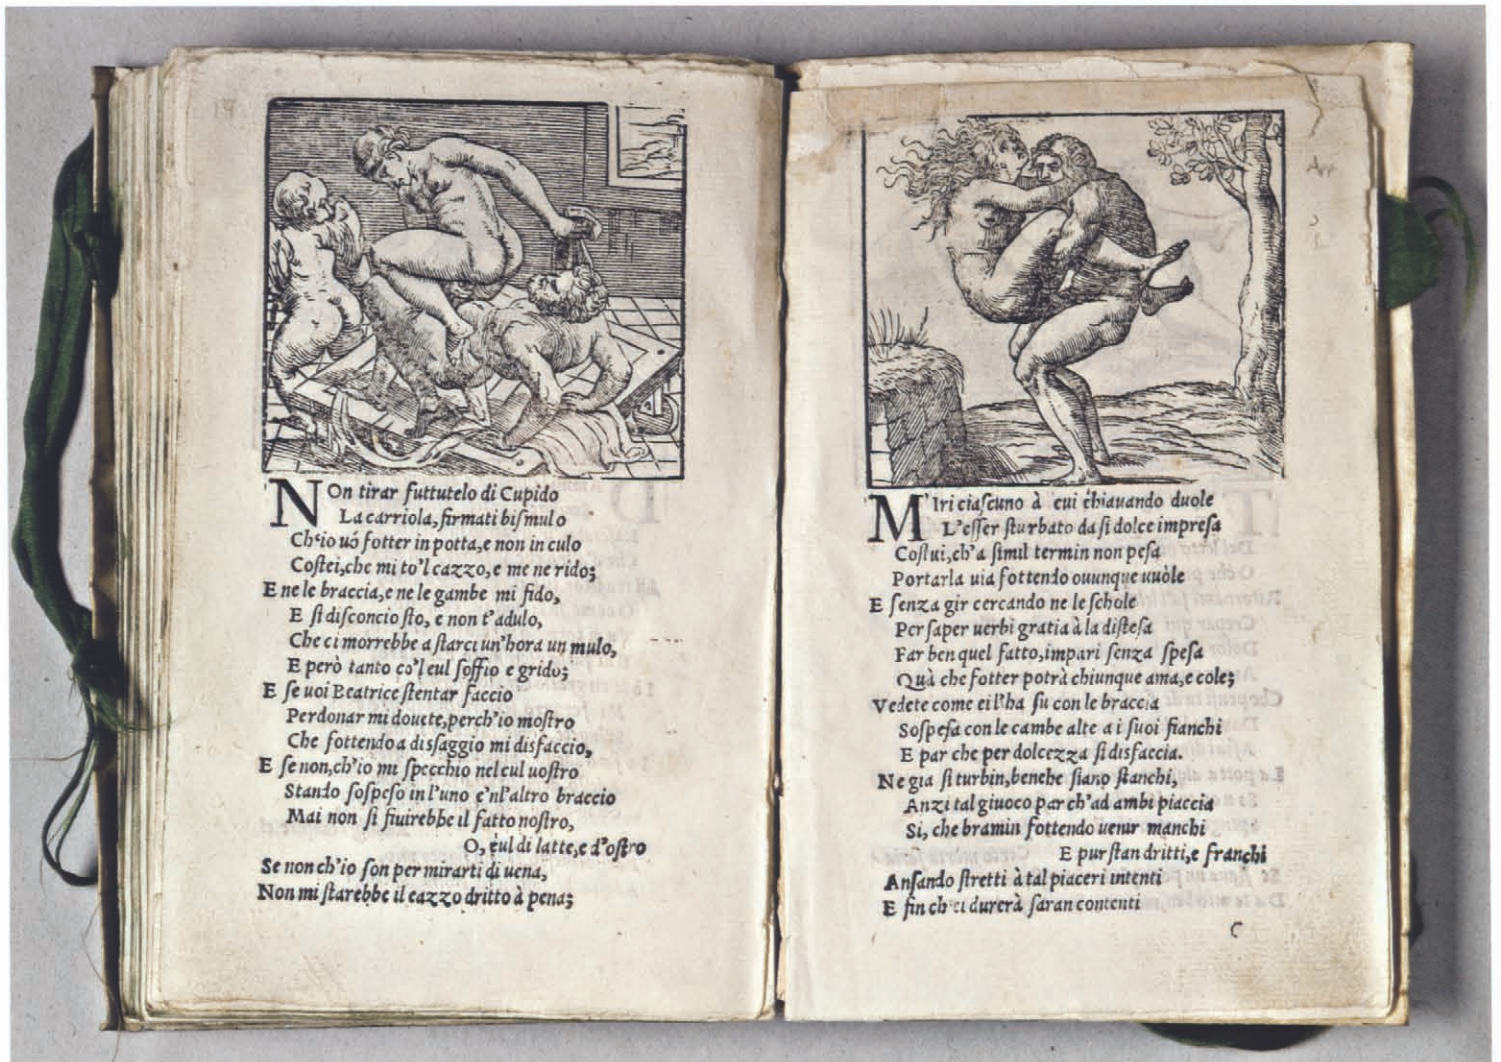 NOn tirar futtutelo di Cupido
La carriola, firmati bismulo
Ch'io uó fotter in potta, e non in culo
Costei, che mi to'l cazzo, e me ne rido;
E ne le braccia, e ne le gambe mi fido,
E si disconcio sto, e non t'adulo,
Che ci morrebbe a starci un'hora un mulo,
E però tanto co'l cul soffio e grido;
E se uoi Beatrice stentar faccio
Perdonar mi douete, perch'io mostro
Che fottendo a disaggio mi disfaccio,
E se non, ch'io mi specchio nel cul uostro
Stando sospeso in l'uno e'n l'altro braccio
Mai non si fiuirebbe il fatto nostro,
O, cul di latte, e d'ostro
Se non ch'io son per mirarti di uena,
Non mi starebbe il cazzo dritto à pena;
M'Iri ciascuno à cui chiauando duole
L'esser sturbato da si dolce impresa
Costui, ch'a simil termin non pesa
Portarla uia fottendo ouunque uuòle
E senza gir cercando ne le schole
Per saper uerbi gratia à la distesa
Far ben quel fatto, impari senza spesa
Quà che fotter potrà chiunque ama, e cole;
Vedete come ei l'ha su con le braccia
Sospesa con le cambe alte a i suoi fianchi
E par che per dolcezza si disfaccia.
Ne gia si turbin, benche siano stanchi,
Anzi tal giuoco par ch'ad ambi piaccia
Si, che bramin fottendo uenir manchi
E pur stan dritti, e franchi
Ansando stretti à tal piaceri intenti
E fin ch'ei durerà saran contenti
C